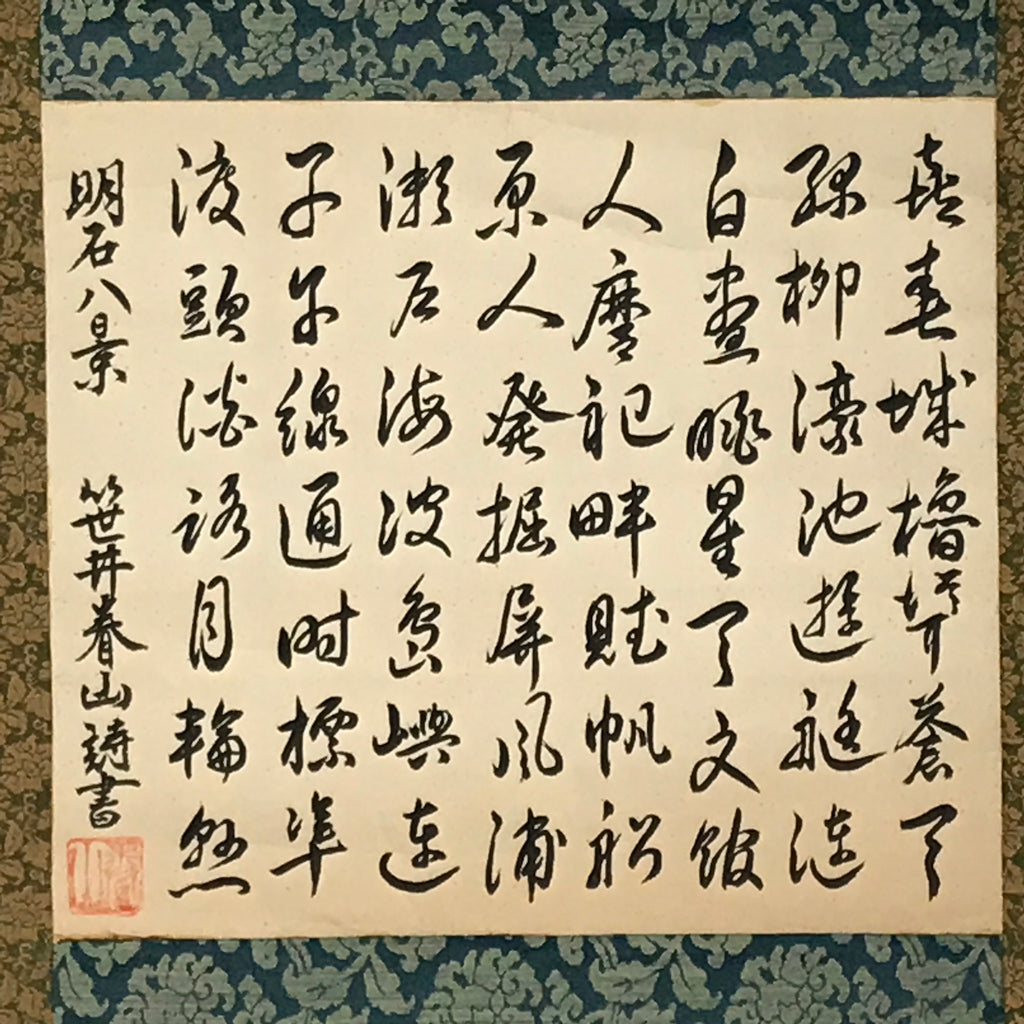 喜春城櫓聳蒼天
柳濠池遊艇漣
白晝眺星天文館
人麿祀畔賦帆船
原人発掘屏風浦
瀬戸海波島嶼連
子午線通時標準
渡頭淡路月輪懸
明石八景 笹井春山詩書